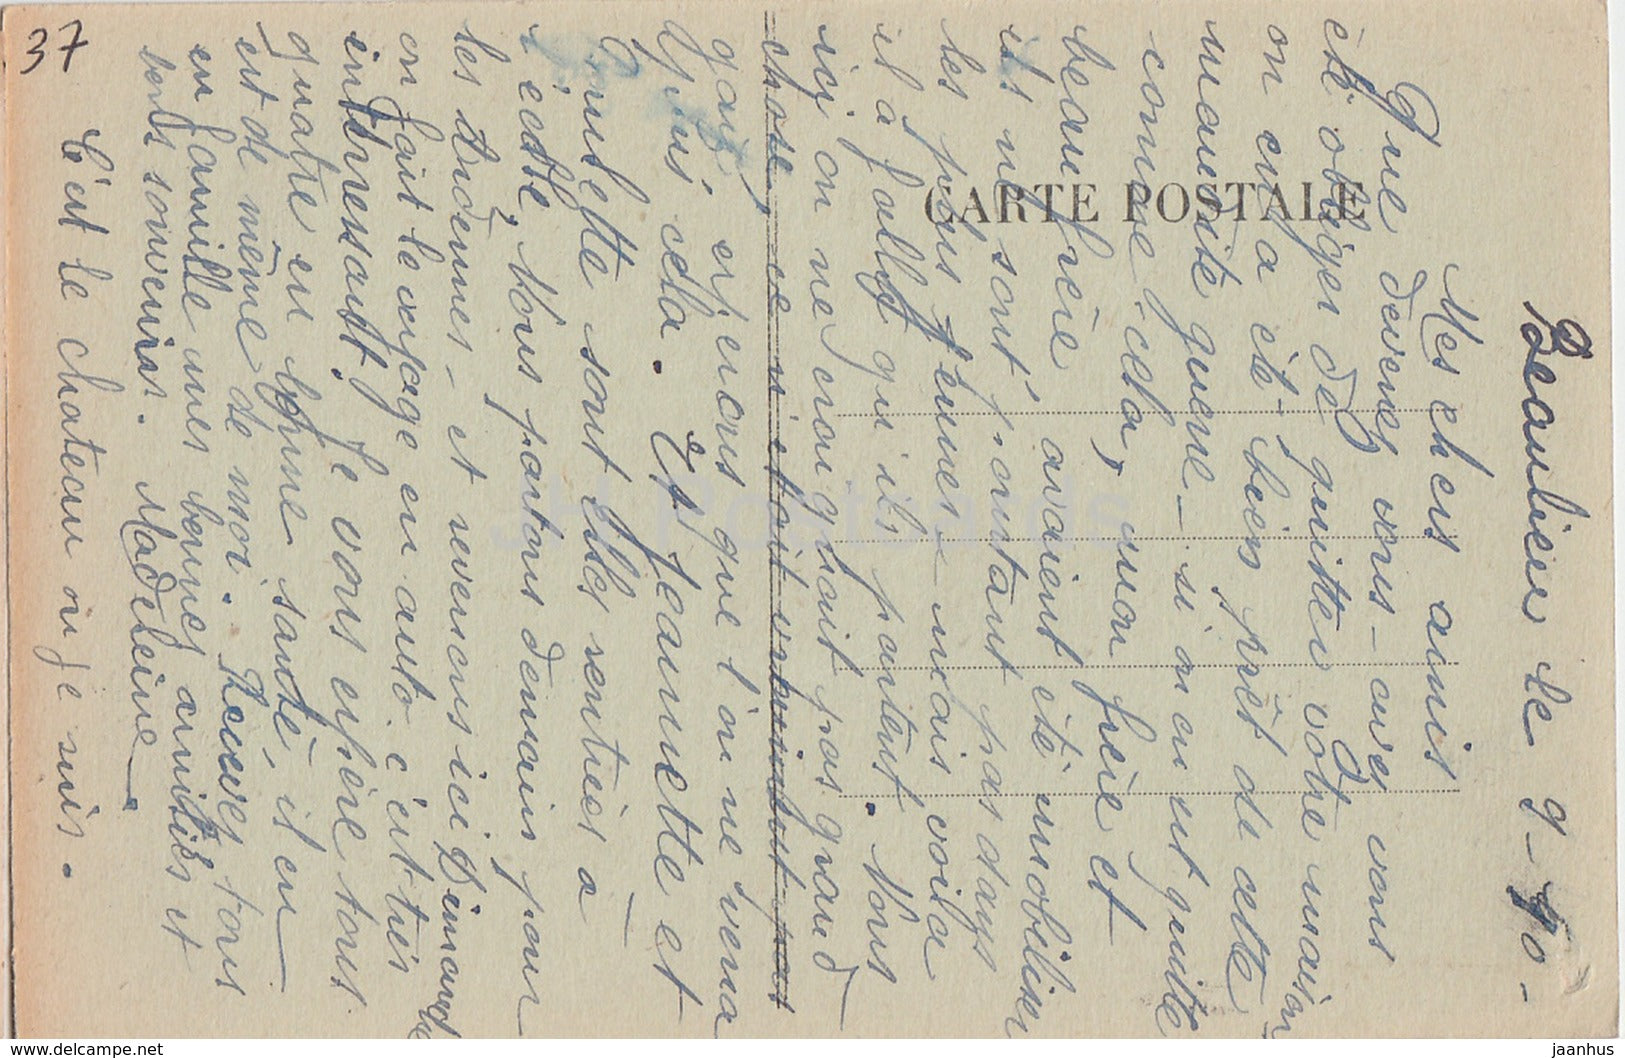 Beaulieu le 9-
Mes chers amis
Que devenez vous - avez vous
été obligés de quitter votre maison
on en a été bien prêt de cette
maudite guerre - si on en est quitte
comme cela, mon frère et
beau frère avaient été mobilisés
ils ne sont pourtant pas dans
les plus jeunes - mais voila
il a fallu qu'ils partent. Nous
ici on ne craignait pas grand
chose, ce n'était
gais, espérons que l'on ne verra
plus cela. Et Jeannette et
Paulette sont elles rentrées à
l'école, Nous partons demain pour
les Ardennes - et reverons ici Dimanche
on fait le voyage en auto. c'est très
intéressant. Je vous espère tous
quatre en bonne santé, il en
est de même de moi. Recevez tous
en famille mes bonnes amitiés et
bons souvenirs. Madeleine
C'est le chateau où je suis.
37
CARTE POSTALE
JH Postcards
delcampe.net
jaanhus